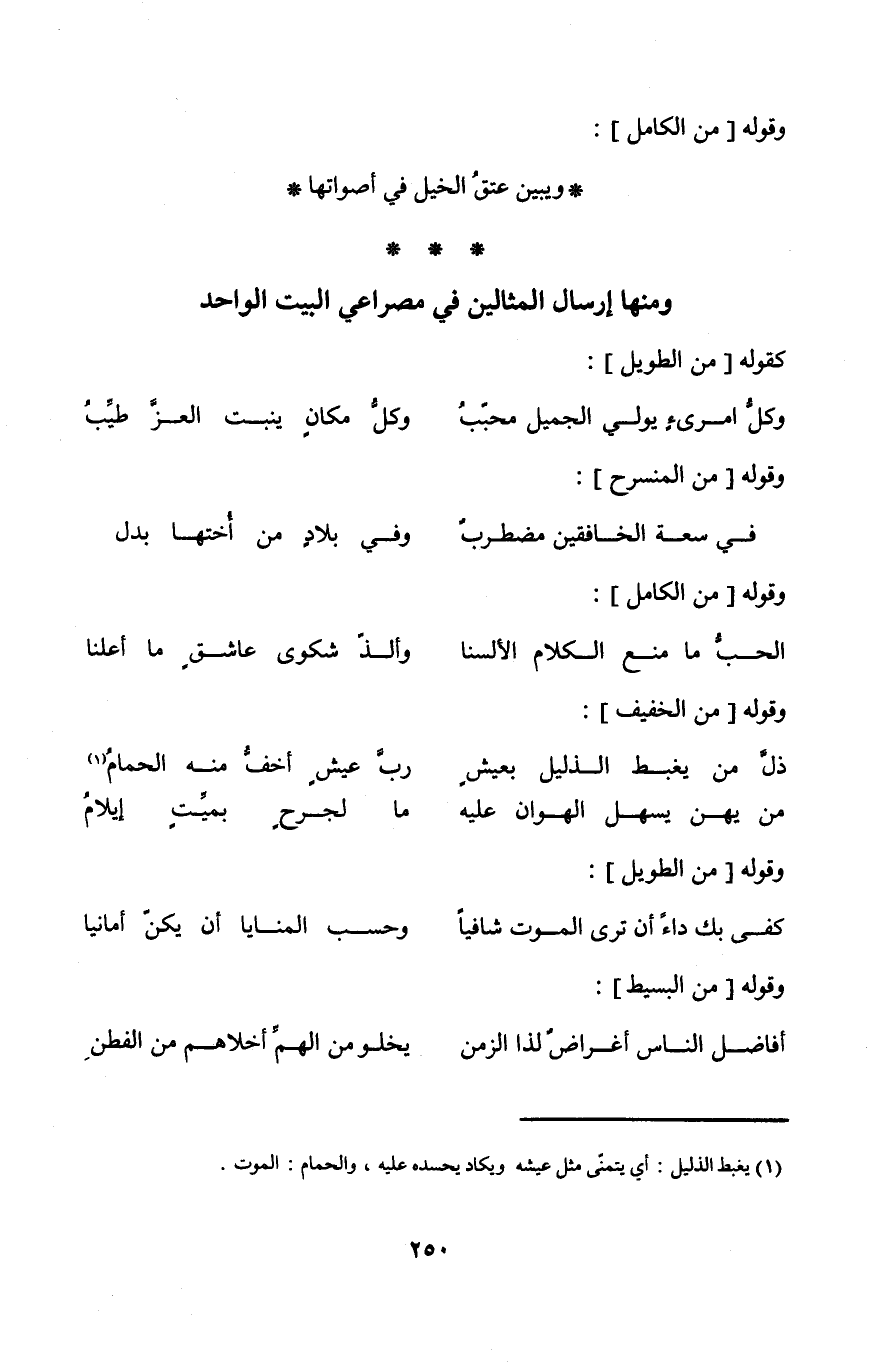 وقوله [ من الكامل ] :
* ويبين عتقُ الخيل في أصواتها *
* * *
ومنها إرسال المثالين في مصراعي البيت الواحد
كقوله [ من الطويل ] :
وكلُّ امرىءٍ يولي الجميل محبّبُ وكلُّ مكانٍ ينبت العزَّ طيِّبُ
وقوله [ من المنسرح ] :
في سعة الخافقين مضطربٌ وفي بلادٍ من أُختها بدل
وقوله [ من الكامل ] :
الحبُّ ما منع الكلام الألسنا وألذّ شكوى عاشقٍ ما أعلنا
وقوله [ من الخفيف ] :
ذلَّ من يغبط الذليل بعيشٍ ربَّ عيشٍ أخفُّ منه الحمامُ(١)
من يهن يسهل الهوان عليه ما لجرحٍ بميِّتٍ إيلامُ
وقوله [ من الطويل ] :
كفى بك داءً أن ترى الموت شافياً وحسب المنايا أن يكنّ أمانيا
وقوله [ من البسيط ] :
أفاضل الناس أغراضٌ لذا الزمن يخلو من الهمِّ أخلاهم من الفطنِ
(١) يغبط الذليل : أي يتمنّى مثل عيشه ويكاد يحسده عليه ، والحمام : الموت .
٢٥٠